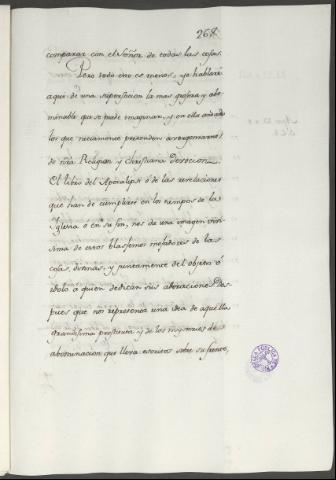 268
comparar con el Señor de todas las cosas.
Pero todo esto es menos, ya hablaré
aqui de una supersticion la mas grosera y abo
minable que se puede imaginar, y en ella
los que neciamente pretenden
de Religion y Christiana Devocion.
El libro del Apocalipsi ó de las revelaciones
que han de cumplirse en los tiempos de la
Yglesia ó en su fin, nos da una imagen vivi-
sima de estos blasfemos mofadores de las
cosas divinas, y juntamente del objeto ó
idolo a quien dedican sus adoraciones. Des
pues que nos representa una idea de aquella
grandisima prostituta y de los mysterios de
abominacion que lleva escritos sobre su frente,